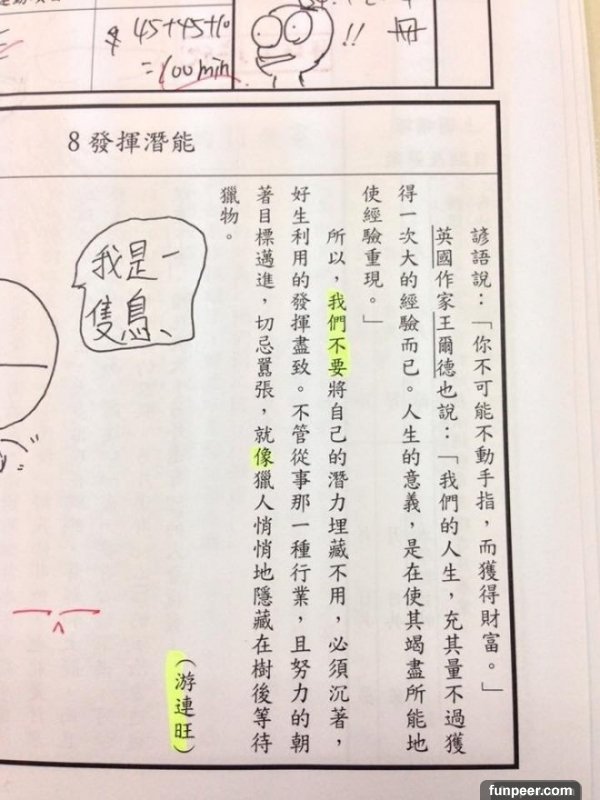 $ 45+45+10
=100min
!!
冊
8 發揮潛能
諺語說：「你不可能不動手指，而獲得財富。」
英國作家王爾德也說：「我們的人生，充其量不過獲
得一次大的經驗而已。人生的意義，是在使其竭盡所能地
使經驗重現。」
所以，我們不要將自己的潛力埋藏不用，必須沉著，
好生利用的發揮盡致。不管從事那一種行業，且努力的朝
著目標邁進，切忌囂張，就像獵人悄悄地隱藏在樹後等待
獵物。
（游連旺）
我是一
隻鳥、
funpeer.com